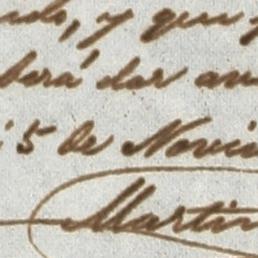 ado, y que
berá dar av
i 5 de Novie
Martin